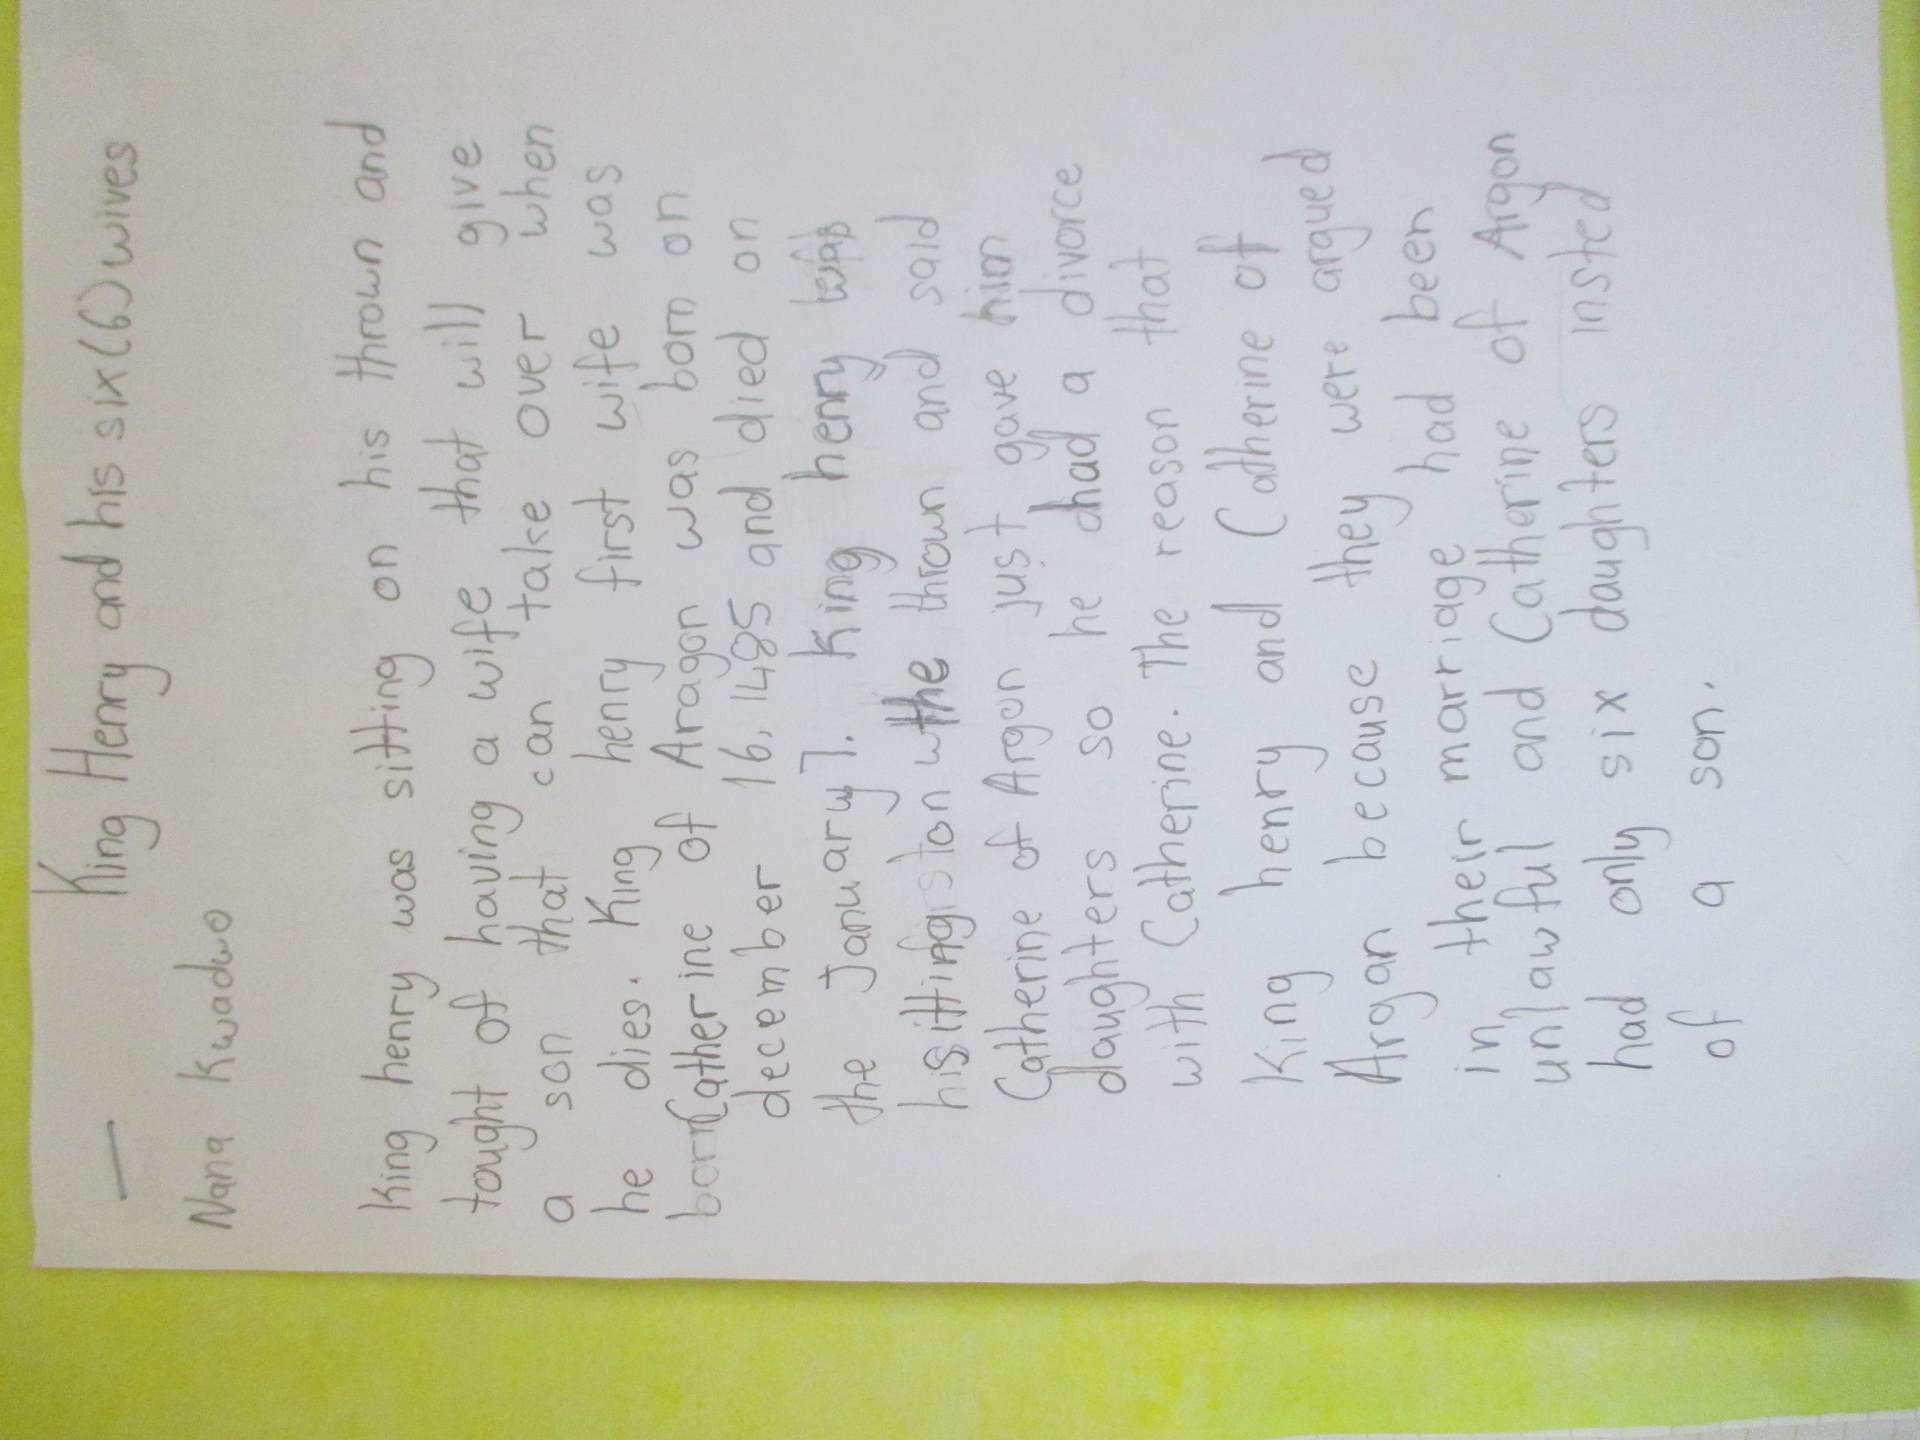 King Henry and his six (6) wives
Nana Kwadwo
King henry was sitting on his thrown and
tought of having a wife that will give
a son that can take over when
he dies. King henry first wife was
born Catherine of Aragon was born on
december 16, 1485 and died on
the January 7. King henry
his sitting on the thrown and said
Catherine of Argon just gave him
daughters so he had a divorce
with Catherine. The reason that
King henry and Catherine of
Argan because they were argued
in their marriage had been
unlawful and Catherine of Argon
had only six daughters insted
of a son.